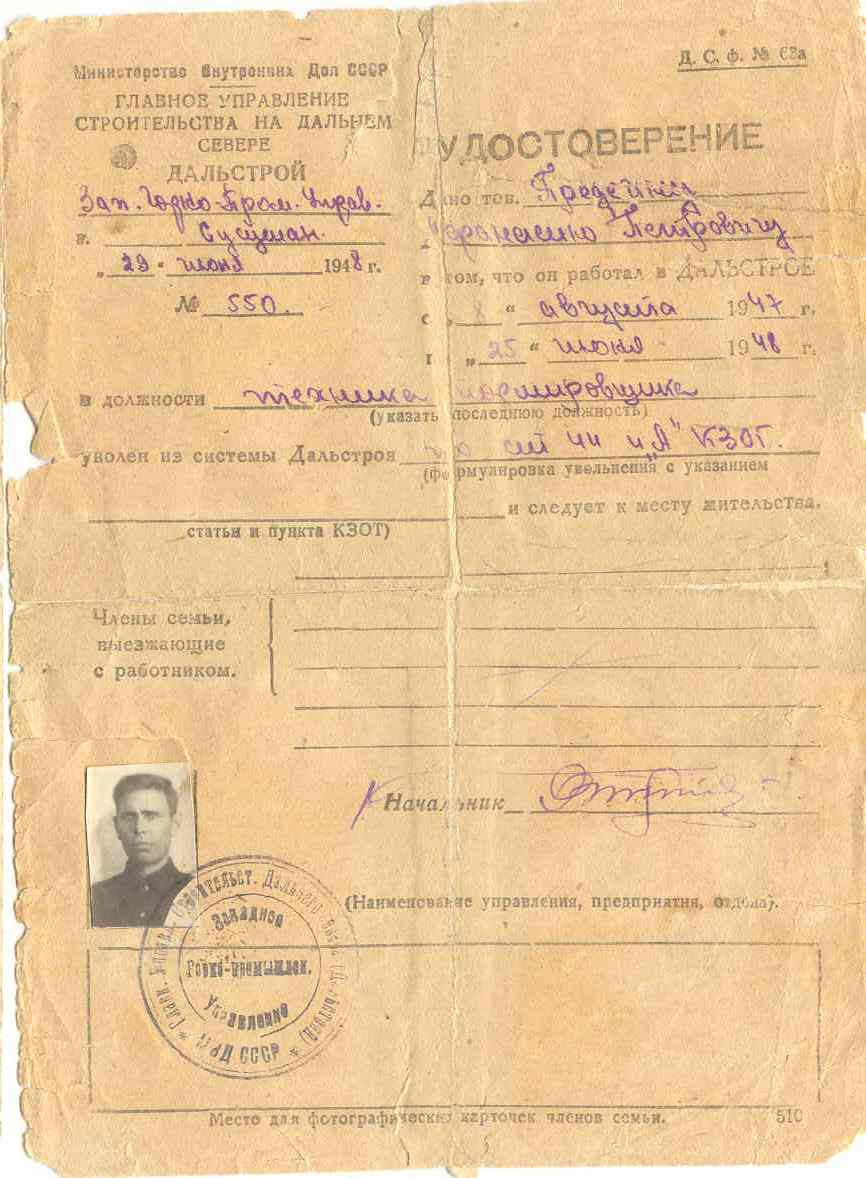 Министерство Внутренних Дел СССР
ГЛАВНОЕ УПРАВЛЕНИЕ
СТРОИТЕЛЬСТВА НА ДАЛЬНЕМ
СЕВЕРЕ
ДАЛЬСТРОЙ
Зап. Горно-Пром. Управ.
п. Сусуман.
„23“ июня 1948 г.
№ 550.
Д. С. ф. №
УДОСТОВЕРЕНИЕ
Дано тов.
Афанасию Петровичу
в том, что он работал в ДАЛЬСТРОЕ
с „8“ августа 1947 г.
п „25“ июня 1948 г.
в должности техника нормировщика
(указать последнюю должность)
уволен из системы Дальстроя по ст 44 п „А“ КЗОТ.
(формулировка увольнения с указанием
и следует к месту жительства.
статьи и пункта КЗОТ)
Члены семьи,
выезжающие
с работником.
Начальник
(Наименование управления, предприятия, отдела).
Главн. Строительст. Дальнего
Западное
Горно-промышлен.
Управление
СССР
Место для фотографических карточек членов семьи.
510